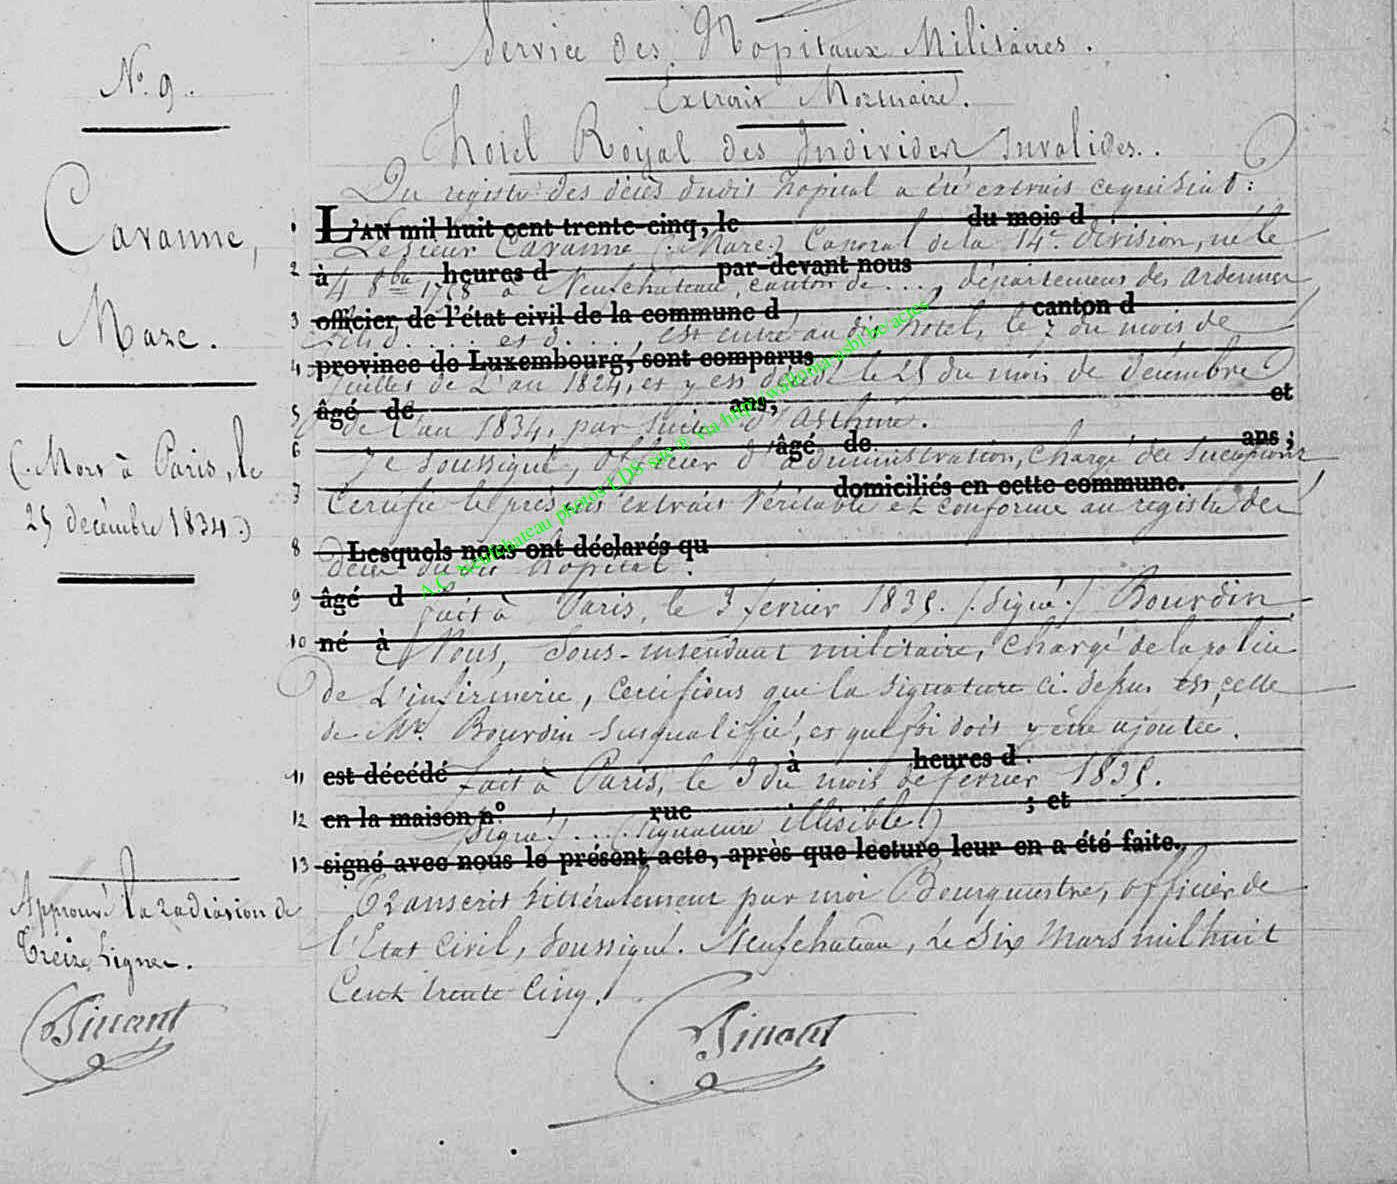 Service des Hopitaux Militaires.
Extrait Mortuaire.
N.o 9.
hotel Royal des Invalides..
Du registre des décès dudit hopital a été extrait ce qui suit :
1 L'AN mil huit cent trente-cinq, le du mois d
Cavanne,
Le Sieur Cavanne (. Marc.) Caporal de la 14e. division, né le
2 à heures d par-devant nous
4 8bre à Neufchateau, canton de ...., département des ardennes
3 officier de l'état civil de la commune d canton d
Marc.
fils d.... et d...., est entré au dit hotel, le 7 du mois de
4 province de Luxembourg, sont comparus
Juillet de L'an 1824, et y est décédé le 25 du mois de décembre
5 âgé de ans, et
de l'an 1834, par suite d'asthme.
6 âgé de ans ;
(. Mort à Paris, le
Je soussigné, Officier d'administration, Chargé des
7 domiciliés en cette commune.
25 décembre 1834.)
Certifie le présent extrait véritable et conforme au registre des
8 Lesquels nous ont déclarés qu
décès du dit hopital.
A.C. Neufchateau photos LDS sité ® via http://wallonia-asbl.be/actes
9 âgé d
fait à Paris, le 3 fevrier 1835. (. Signé.) Bourdin
10 né à
Nous, Sous-intendant militaire, Chargé de la police
de L'infirmerie, Certifions que la signature ci-dessus est celle
de Mr. Bourdin susqualifié, et que foi doit y être ajoutée.
11 est décédé à heures d
fait à Paris, le 3 du mois de fevrier 1835.
12 en la maison n.o rue ; et
Signé) .... (Signature illisible.)
13 signé avec nous le présent acte, après que lecture leur en a été faite.
Approuvé la radiation de
Treize lignes.
Transcrit littéralement par moi Bourgmestre, officier de
l'Etat Civil, soussigné. Neufchateau, le Six Mars mil huit
Cent trente Cinq.